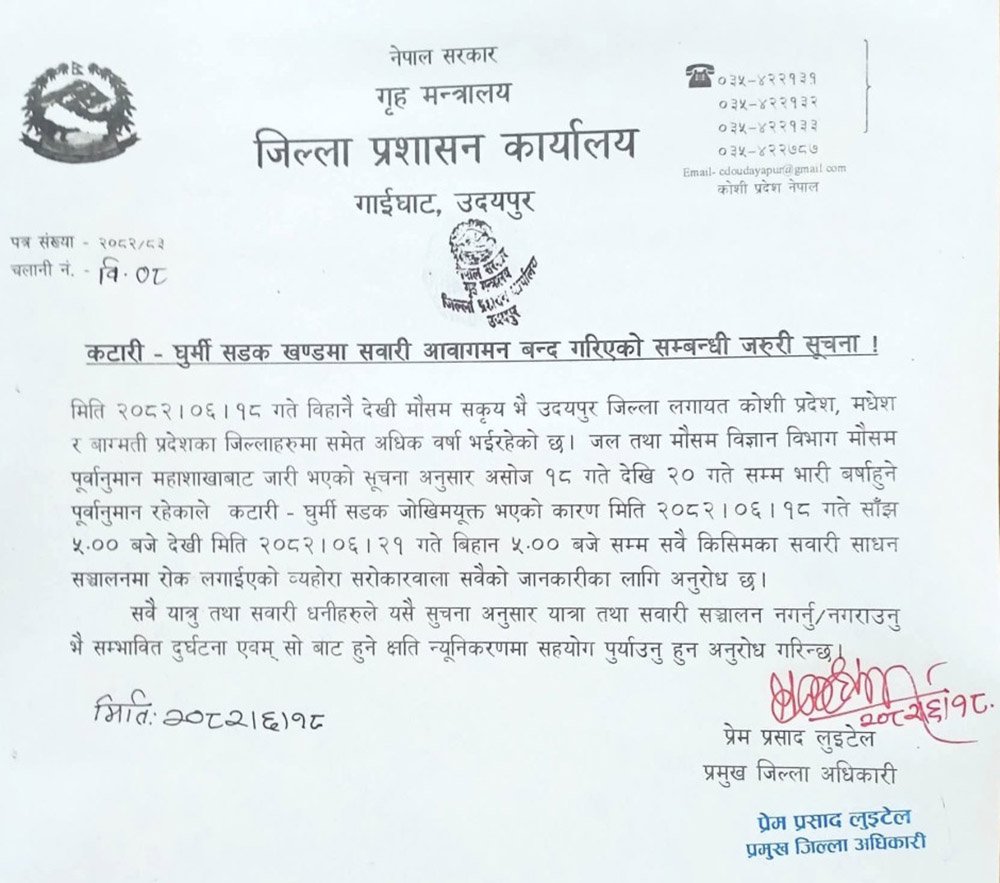 नेपाल सरकार
गृह मन्त्रालय
जिल्ला प्रशासन कार्यालय
गाईघाट, उदयपुर
०३५-४२२१३१
०३५-४२२१३२
०३५-४२२१३३
०३५-४२२७८७
Email- cdoudayapur@gmail.com
कोशी प्रदेश नेपाल
पत्र संख्या - २०८२/८३
चलानी नं. - वि. ०८
नेपाल सरकार
गृह मन्त्रालय
जिल्ला प्रशासन कार्यालय
उदयपुर
कटारी - घुर्मी सडक खण्डमा सवारी आवागमन बन्द गरिएको सम्बन्धी जरुरी सूचना !
मिति २०८२।०६।१८ गते विहानै देखी मौसम सकृय भै उदयपुर जिल्ला लगायत कोशी प्रदेश, मधेश
र बाग्मती प्रदेशका जिल्लाहरुमा समेत अधिक वर्षा भईरहेको छ। जल तथा मौसम विज्ञान विभाग मौसम
पूर्वानुमान महाशाखाबाट जारी भएको सूचना अनुसार असोज १८ गते देखि २० गते सम्म भारी बर्षाहुने
पूर्वानुमान रहेकाले कटारी - घुर्मी सडक जोखिमयूक्त भएको कारण मिति २०८२।०६।१८ गते साँझ
५.०० बजे देखी मिति २०८२।०६।२१ गते बिहान ५.०० बजे सम्म सवै किसिमका सवारी साधन
सञ्चालनमा रोक लगाईएको व्यहोरा सरोकारवाला सवैको जानकारीका लागि अनुरोध छ।
सवै यात्रु तथा सवारी धनीहरुले यसै सुचना अनुसार यात्रा तथा सवारी सञ्चालन नगर्नु/नगराउनु
भै सम्भावित दुर्घटना एवम् सो बाट हुने क्षति न्यूनिकरणमा सहयोग पुर्याउनु हुन अनुरोध गरिन्छ।
मिति: २०८२।६।१८
२०८२।६।१८.
प्रेम प्रसाद लुइटेल
प्रमुख जिल्ला अधिकारी
प्रेम प्रसाद लुइटेल
प्रमुख जिल्ला अधिकारी